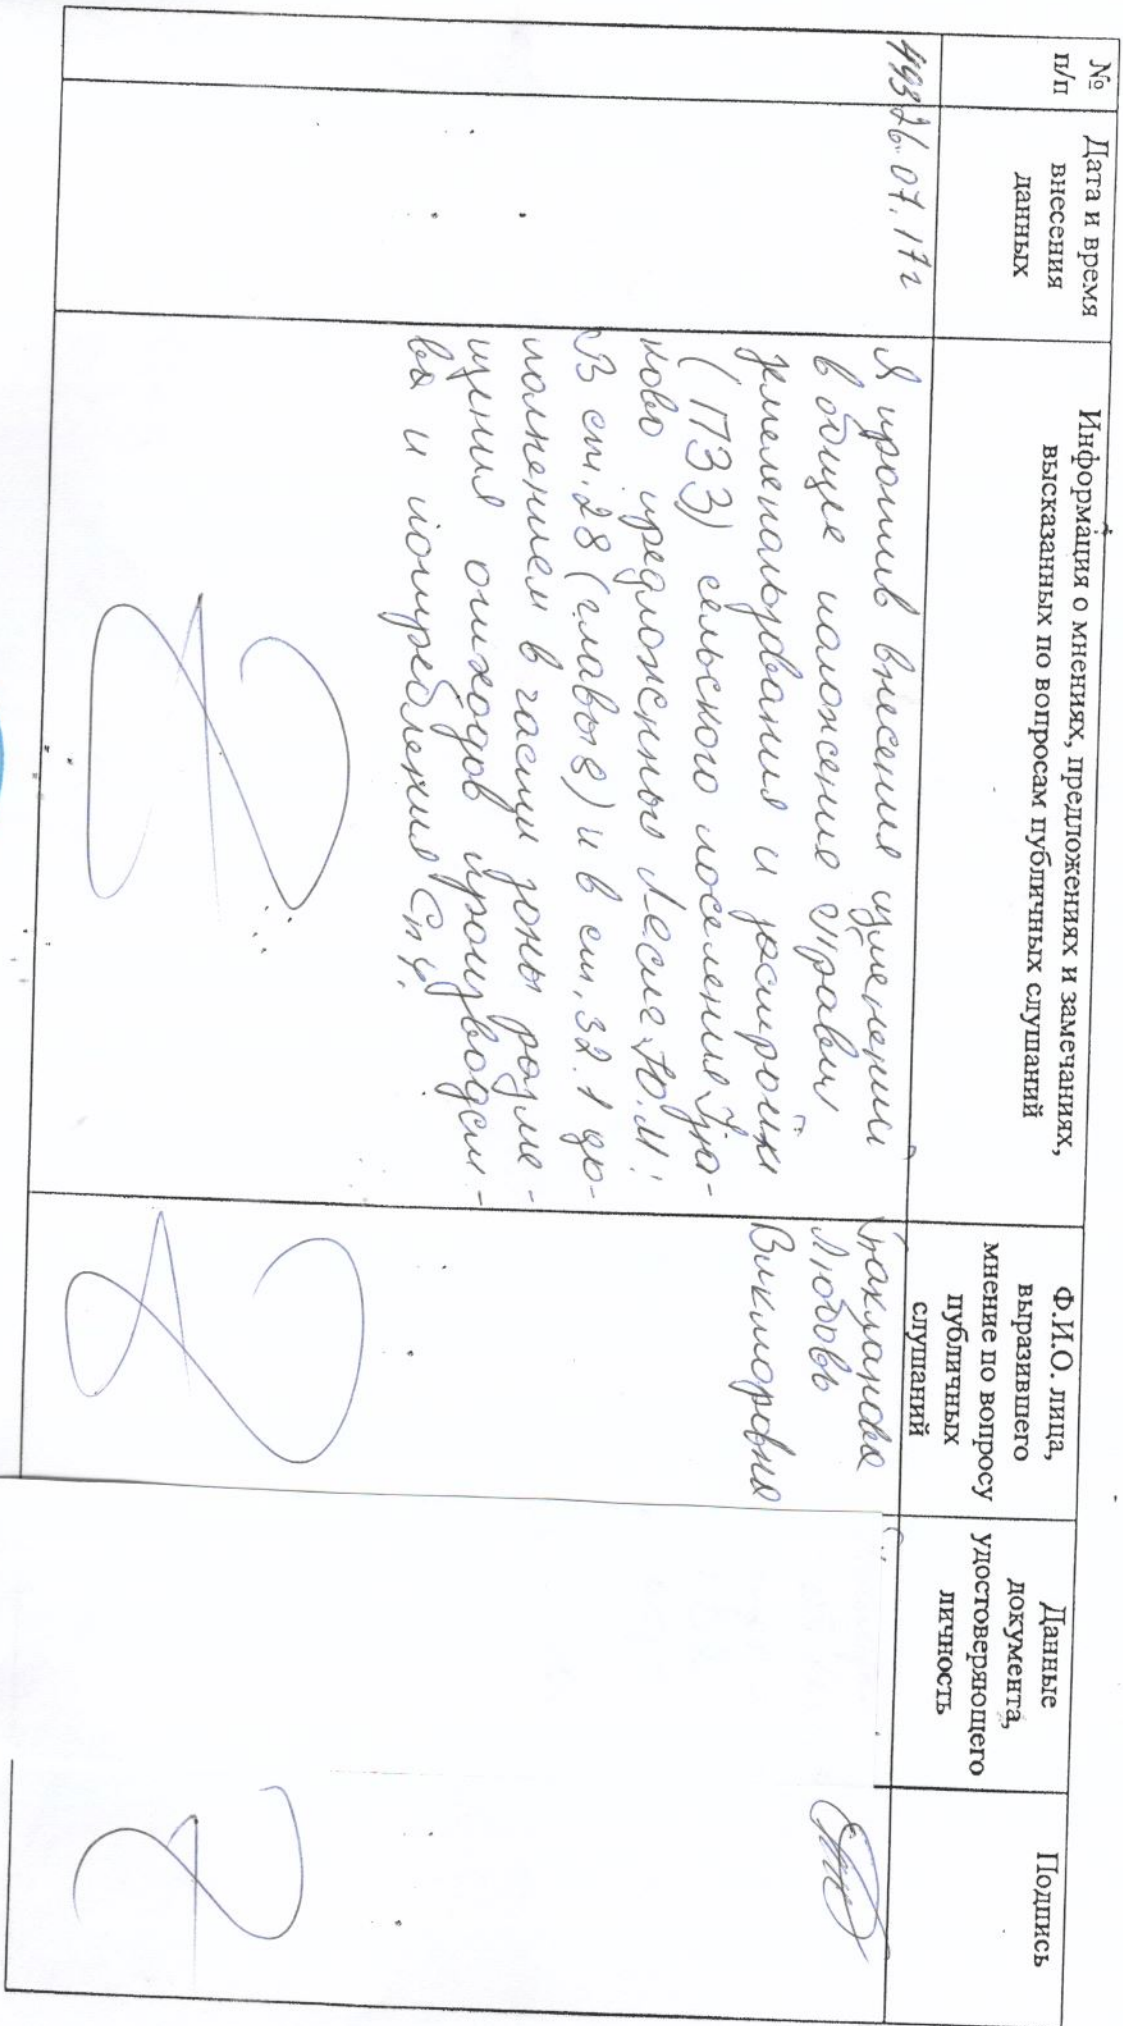 №
п/п
Дата и время
внесения
данных
Информация о мнениях, предложениях и замечаниях,
высказанных по вопросам публичных слушаний
Ф.И.О. лица,
выразившего
мнение по вопросу
публичных
слушаний
Данные
документа,
удостоверяющего
личность
Подпись
493
26.07.17г
Я против внесения изменений
в общие положение Правил
землепользования и застройки
(ПЗЗ) сельского поселения
ково предложенных Ю.М:
В ст.28 (главы 8) и в ст.32.1 до-
полнением в части зоны разме-
щения отходов производст-
ва и потребления Сп4.
Любовь
Викторовна